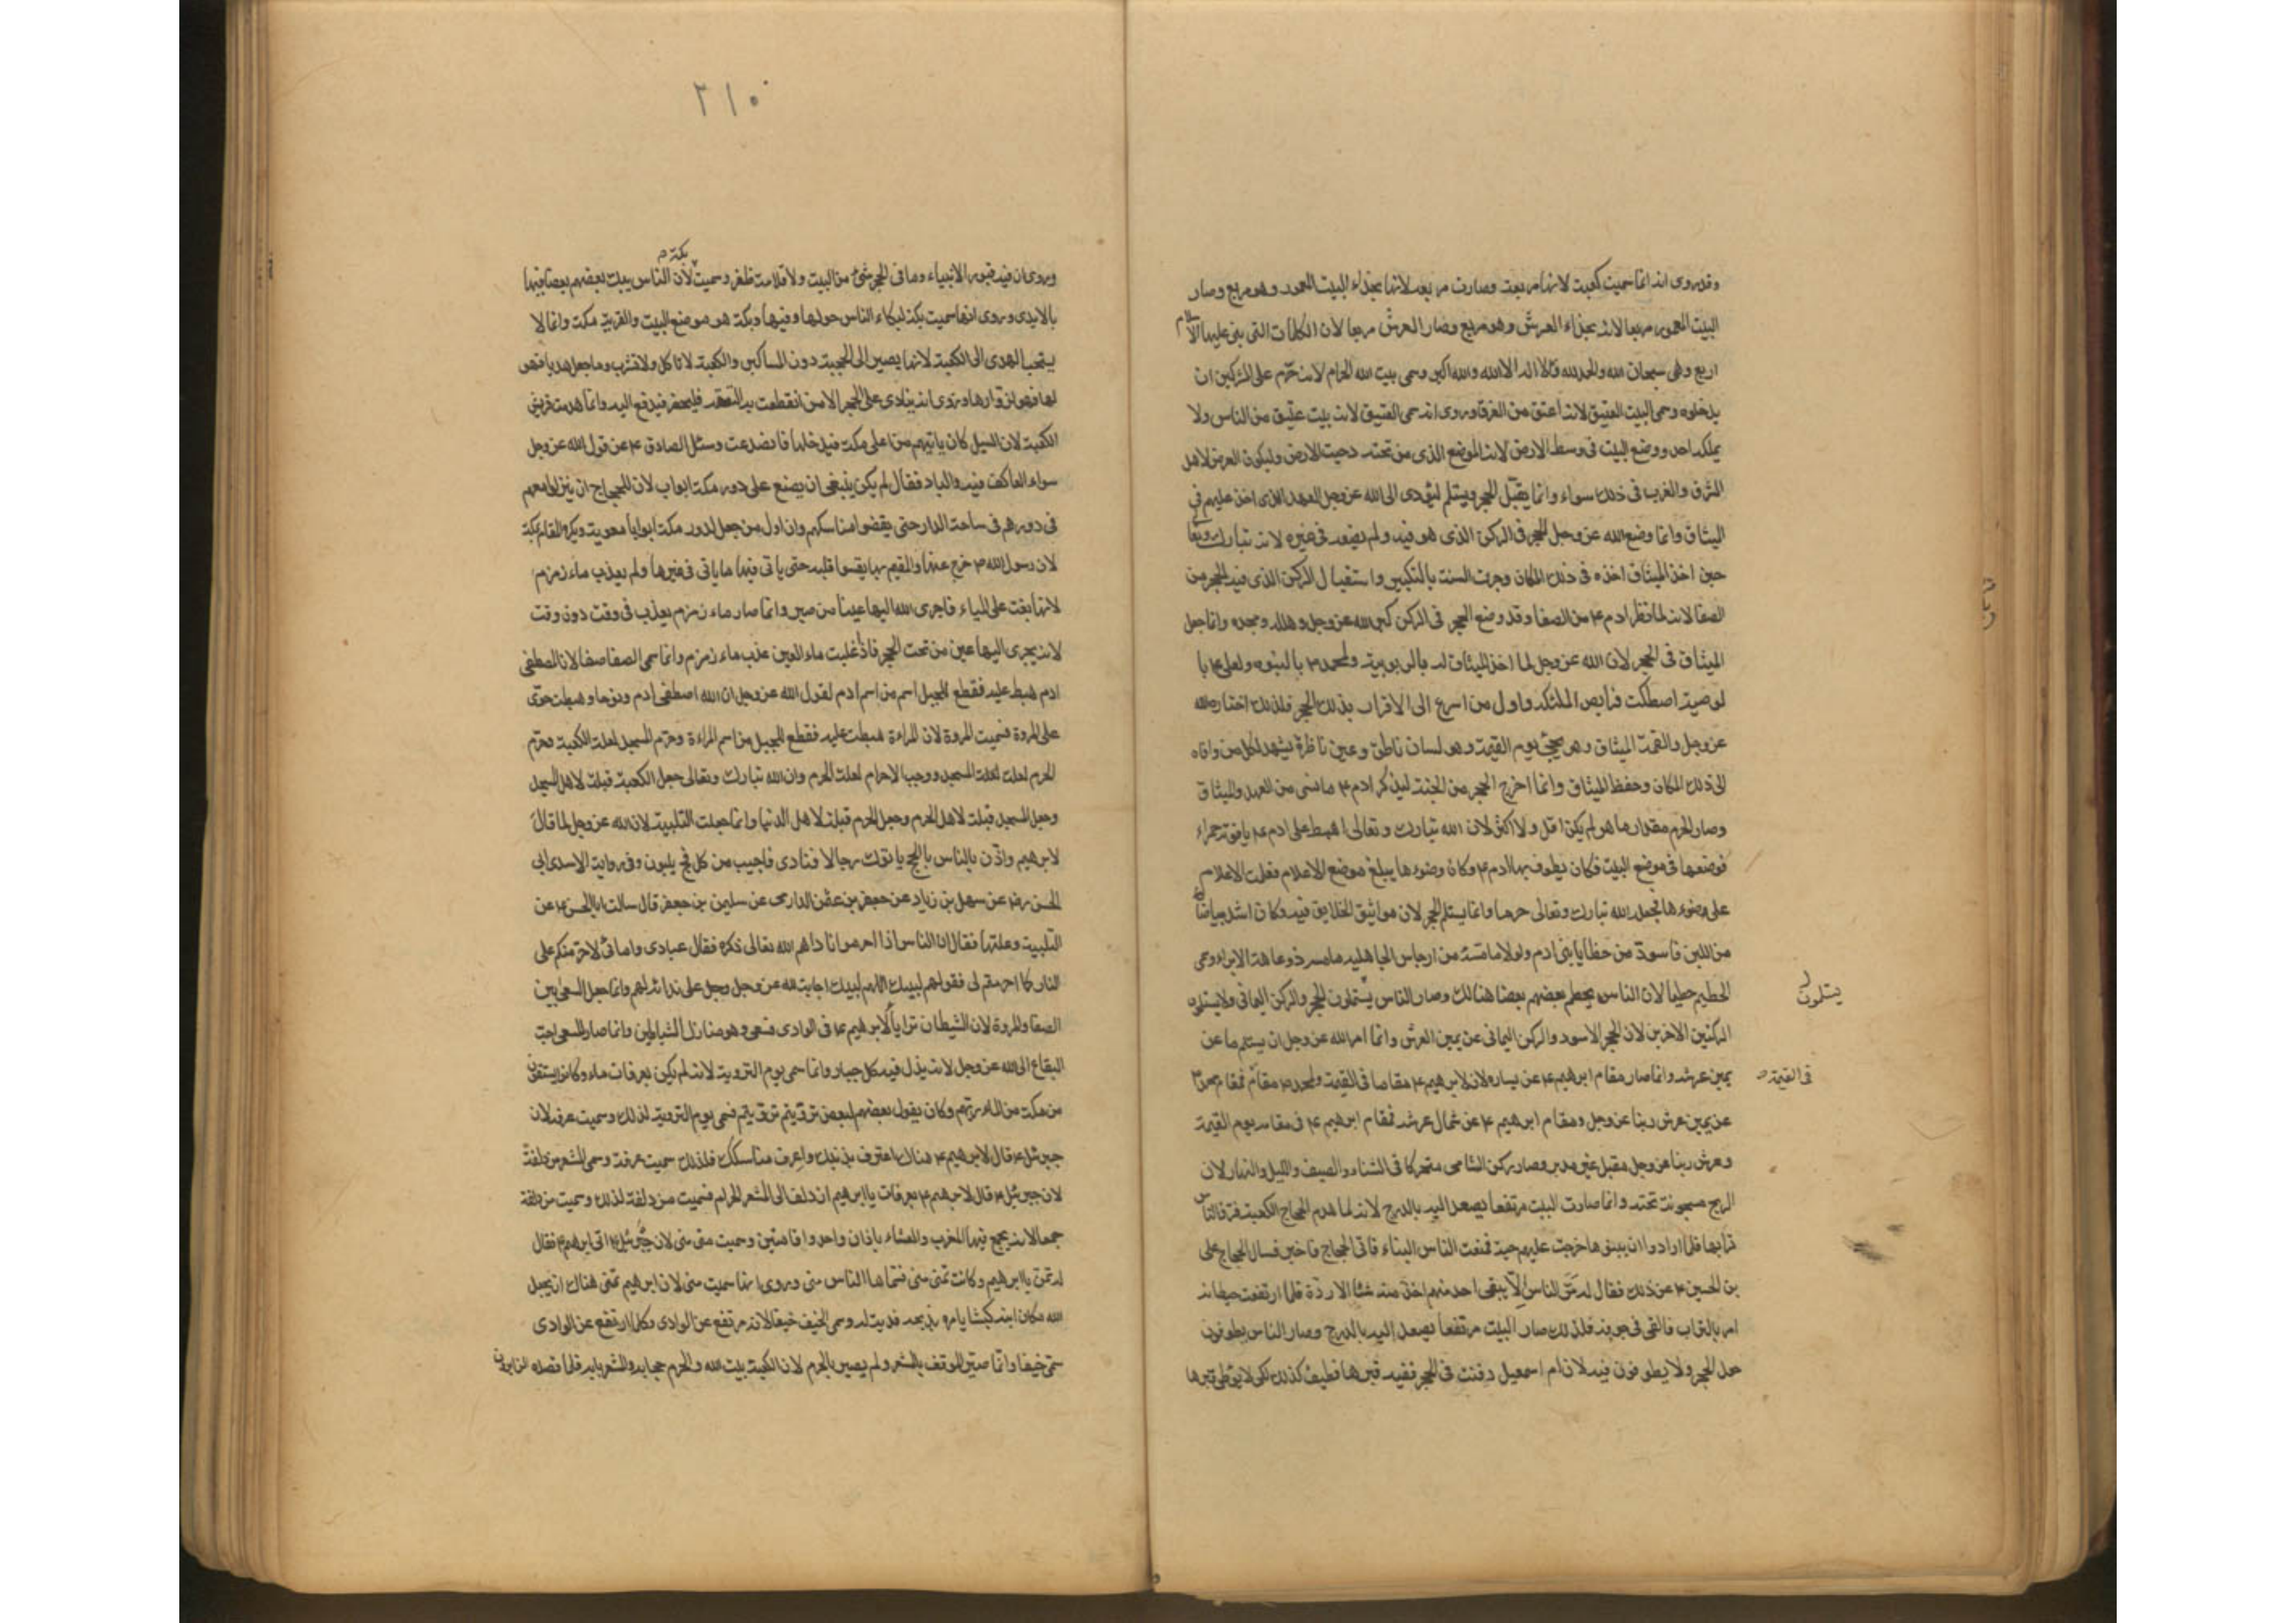 وقد روى انه انما سميت كعبة لانها مربعة وصارت مربعة لانها بحذاء البيت المعمور وهو مربع وصار
البيت المعمور مربعا لانه بحذاء العرش وهو مربع وصار العرش مربعا لان الكلمات التى بنى عليها الاسلام
اربع وهى سبحان الله والحمد لله ولا اله الا الله والله اكبر وسمى بيت الله الحرام لانه حرّم على المشركين ان
يدخلوه وسمى البيت العتيق لانه اعتق من الغرق وروى انه سمى العتيق لانه بيت عتيق من الناس ولا
يملكه احد ووضع البيت فى وسط الارض لانه الموضع الذى من تحته دحيت الارض وليكون الفرض لاهل
الشرق والغرب فى ذلك سواء وانما يقبّل الحجر ويستلم ليؤدى الى الله عز وجل العهد الذى اخذ عليهم فى
الميثاق وانما وضع الله عز وجل الحجر فى الركن الذى هو فيه ولم يضعه فى غيره لانه تبارك وتعالى
حين اخذ الميثاق اخذه فى ذلك المكان وجرت السنة بالتكبير واستقبال الركن الذى فيه الحجر من
الصفا لانه لما نظر ادم ع من الصفا وقد وضع الحجر فى الركن كبر الله عز وجل وهلله ومجده وانما جعل
الميثاق فى الحجر لان الله عز وجل لما اخذ الميثاق له بالربوبية ولمحمد ص بالنبوه ولعلى ع با
لوصية اصطكت فرايص الملئكه واول من اسرع الى الاقرار بذلك الحجر فلذلك اختاره الله
عز وجل والقمه الميثاق وهو يجئ يوم القيمة وله لسان ناطق وعين ناظرة يشهد لكل من وافاه
الى ذلك المكان وحفظ الميثاق وانما اخرج الحجر من الجنة ليذكر ادم ع ما نسى من العهد والميثاق
وصار الحرم مقدار ما هو لم يكن اقل ولا اكثر لان الله تبارك وتعالى اهبط على ادم ع ياقوتة حمراء
فوضعها فى موضع البيت فكان يطوف بها ادم ع وكان ضوءها يبلغ موضع الاعلام فعلمت الاعلام
على ضوءها فجعله الله تبارك وتعالى حرما وانما يستلم الحجر لان مواثيق الخلايق فيه وكان اشد بياضا
من اللبن فاسودّ من خطايا بنى ادم ولولا ما مسّه من ارجاس الجاهلية ما مسه ذو عاهة الا برء وسمى
الحطيم حطيما لان الناس يحطم بعضهم بعضا هنالك وصار الناس يستلمون الحجر والركن اليمانى ولا يستلمون
يستلمون
الركنين الاخرين لان الحجر الاسود والركن اليمانى عن يمين العرش وانما امر الله عز وجل ان يستلم ما عن
يمين عرشه وانما صار مقام ابرهيم ع عن يساره لان لابرهيم ع مقاما فى القيمة ولمحمد ص مقام فمقام محمد ص
فى القيمة
عن يمين عرش ربنا عز وجل ومقام ابرهيم ع عن شمال عرشه فمقام ابرهيم ع فى مقامه يوم القيمة
وعرش ربنا عز وجل مقبل غير مدبر وصار ركن الشامى متحركا فى الشتاء والصيف والليل والنهار لان
الريح مسجونة تحته وانما صارت البيت مرتفعا يصعد اليه بالدرج لانه لما هدم الحجاج الكعبة فرق الناس
ترابها فلما ارادوا ان يبنوها خرجت عليهم حية فمنعت الناس البناء فاتى الحجاج فاخبر فسال الحجاج على
بن الحسين ع عن ذلك فقال له مر الناس الّا يبقى احد منهم اخذ منه شيئا الا ردّه فلما ارتفعت حيطانه
امر بالتراب فالقى فى جوفه فلذلك صار البيت مرتفعا يصعد اليه بالدرج وصار الناس يطوفون
حول الحجر ولا يطوفون فيه لان ام اسمعيل دفنت فى الحجر ففيه قبرها فطيف كذلك لكى لا يوطى قبرها
٢١٠
وروى ان فيه قبور الانبياء وما فى الحجر شئ من البيت ولا قلامة ظفر وسميت بكة لان الناس يبك بعضهم بعضا فيها
بالايدى وروى انها سميت بكة لبكاء الناس حولها وفيها وبكة هو موضع البيت والقرية مكة وانما لا
يستحب الهدى الى الكعبة لانها يصير الى الحجبة دون المساكين والكعبة لا تاكل ولا تشرب وما جعل هديا فهو
لها فهو لزوارها وروى انه ينادى على الحجر الا من انقطعت به النفقة فليحضر فيدفع اليه وانما هدمت قريش
الكعبة لان السيل كان ياتيهم من اعلى مكة فيدخلها فانصدعت وسئل الصادق ع عن قول الله عز وجل
سواء العاكف فيه والباد فقال لم يكن ينبغى ان يصنع على دور مكة ابواب لان للحجاج ان ينزلوا معهم
فى دورهم فى ساحة الدار حتى يقضوا مناسكهم وان اول من جعل لدور مكة ابوابا معوية ويكره المقام بمكة
لان رسول الله ص خرج عنها والمقيم بها يقسوا قلبه حتى ياتى فيها ما ياتى فى غيرها ولم يعذب ماء زمزم
لانها بغت على المياء فاجرى الله اليها عينا من صبر وانما صار ماء زمزم يعذب فى وقت دون وقت
لانه يجرى اليها عين من تحت الحجر فاذا غلبت ماء العين عذب ماء زمزم وانما سمى الصفا صفا لان المصطفى
ادم هبط عليه فقطع للجبل اسم من اسم ادم لقول الله عز وجل ان الله اصطفى ادم ونوحا وهبطت حوّى
على المروة فسميت المروة لان المراءة هبطت عليه فقطع للجبل من اسم المراءة وحرّم المسجد لعلة الكعبة وحرّم
الحرم لعلة لعلة المسجد ووجب الاحرام لعلة الحرم وان الله تبارك وتعالى جعل الكعبة قبلة لاهل المسجد
وجعل المسجد قبلة لاهل الحرم وجعل الحرم قبلة لاهل الدنيا وانما جعلت التلبية لان الله عز وجل لما قال
لابرهيم واذّن بالناس بالحج ياتوك رجالا فنادى فاجيب من كل فج يلبون وفى رواية الاسدى ابى
الحسن رض عن سهل بن زياد عن جعفر بن عثمن الدارمى عن سليمن بن جعفر قال سالت ابا الحسن ع عن
التلبية وعلتها فقال ان الناس اذا احرموا ناداهم الله تعالى ذكره فقال عبادى وامائى لاحرّمنكم على
النار كما احرمتم لى فقولهم لبيك اللهم لبيك اجابة لله عز وجل وجل على ندائه لهم وانما جعل السعى بين
الصفا والمروة لان الشيطان ترايا لابرهيم ع فى الوادى فسعى وهو منازل الشياطين وانما صار المسعى احب
البقاع الى الله عز وجل لانه يذل فيه كل جبار وانما سمى يوم التروية لانه لم يكن بعرفات ماء وكانوا يستقون
من مكة من الماء ريّهم وكان يقول بعضهم لبعض تروّيتم تروّيتم فسمى يوم التروية لذلك وسميت عرفة لان
جبرئيل ع قال لابرهيم ع هناك اعترف بذنبك واعرف مناسكك فلذلك سميت عرفة وسمى المشعر مزدلفة
لان جبرئيل ع قال لابرهيم ع بعرفات يا ابرهيم ازدلف الى المشعر الحرام فسميت مزدلفة لذلك وسميت مزدلفة
جمعا لانه يجمع فيها المغرب والعشاء باذان واحد واقامتين وسميت منى منى لان جبرئيل ع اتى ابرهيم ع فقال
له تمنّ يا ابرهيم وكانت تمنى منى فسماها الناس منى وروى انها سميت منى لان ابرهيم تمنى هناك ان يجعل
الله مكان ابنه كبشا يامره بذبحه فدية له وسمى الخيف خيفا لانه مرتفع عن الوادى وكلما ارتفع عن الوادى
سمّى خيفا وانما صيّر الموقف بالمشعر ولم يصير بالحرم لان الكعبة بيت الله والحرم حجابه والمشعر بابه فلما قصده الزايرون